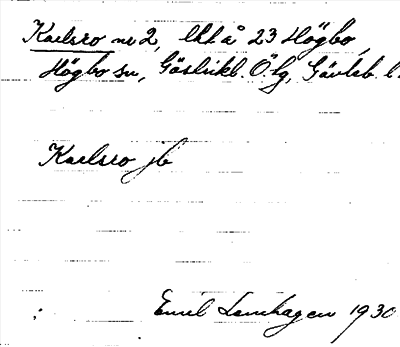 Karlsro nr 2, lht å 23 Högbo,
Högbo sn, Gästrikl. Ö. tg, Gävleb. l.
Karlsro jb
Emil Lannhagen 1930